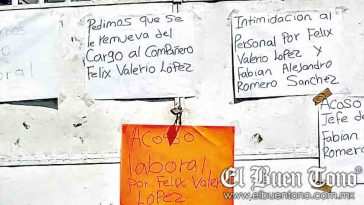 oral
Pedimos que se
le remueva del
Cargo al Compañero
Felix Valerio López
Intimidación al
Personal Por Felix
Valerio López y
Fabian Alejandro
Romero Sanchez
Acoso
laboral
por Felix Valer
López
Acoso
Jefe de
Por
Fabian
Romero
El Buen Tono
www.elbuentono.com.mx